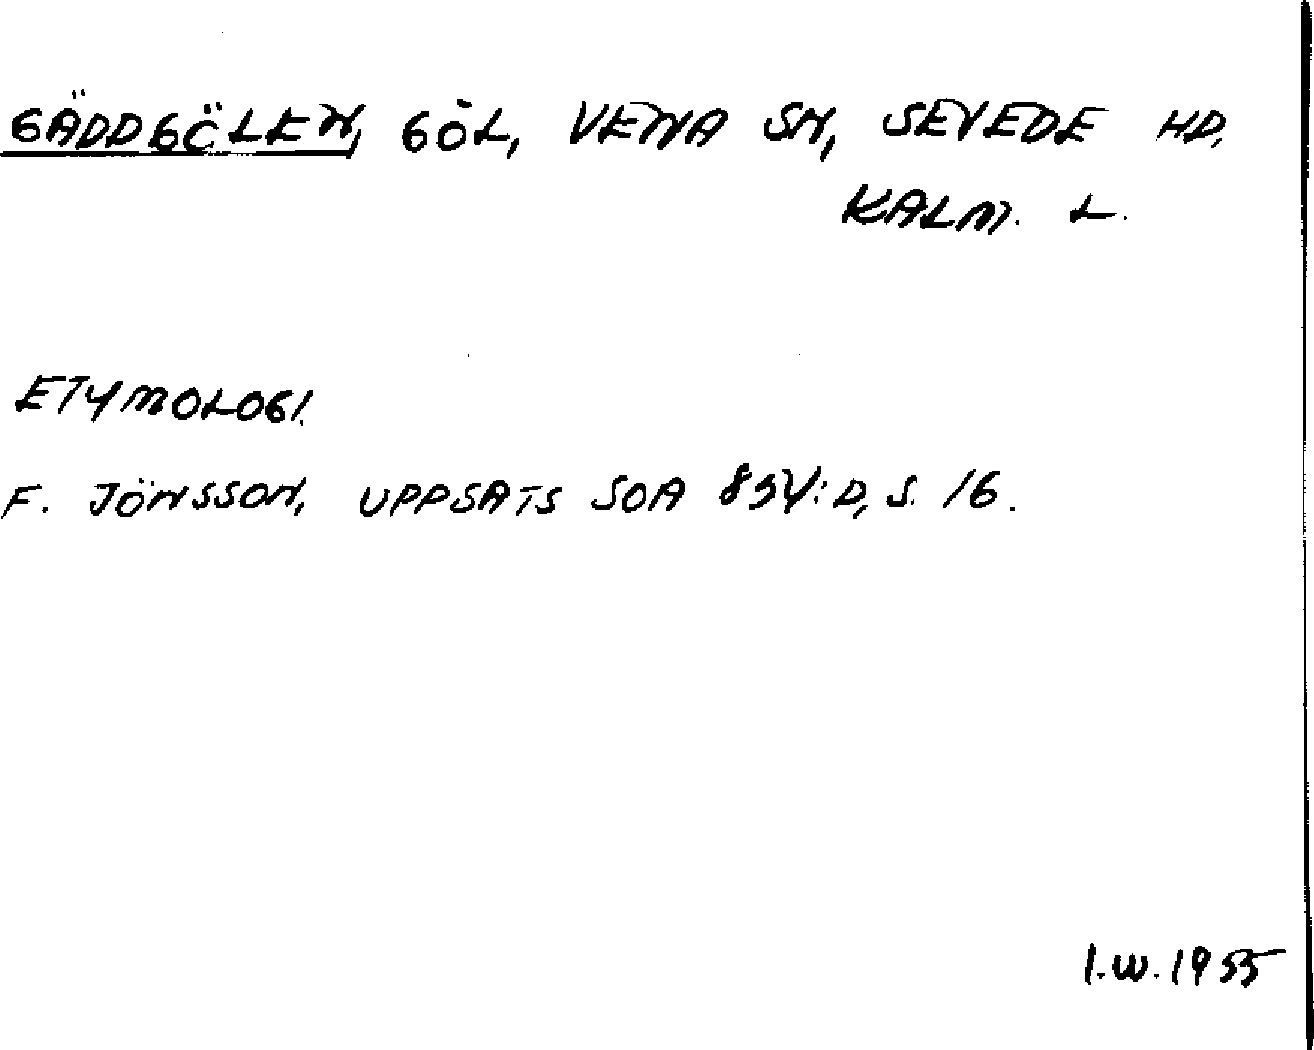 GÄDDGÖLEN, GÖL, VENA SN, SEVEDE HD,
KALM. L.
ETYMOLOGI.
F. JÖNSSON, UPPSATS SOA D, S. 16.
I.W. 1955